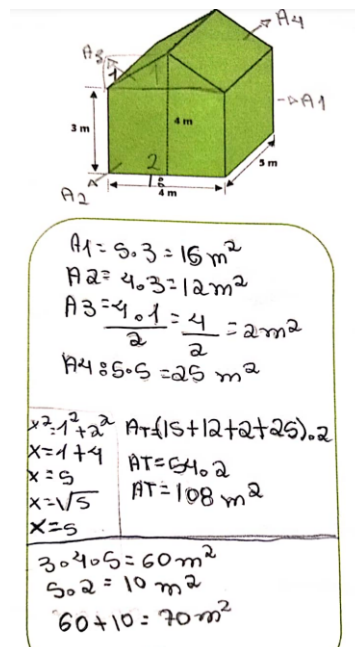 A4
A3
1
1
A1
3 m
4 m
2
5 m
A2
4 m
A1 = 5.3 = 15 m²
A2 = 4.3 = 12 m²
A3 = 4.1/2 = 4/2 = 2 m²
A4: 5.5 = 25 m²
x² = 1² + 2²
x = 1 + 4
x = 5
x = √5
x = 5
AT = (15 + 12 + 2 + 25).2
AT = 54.2
AT = 108 m²
3.4.5 = 60 m²
5.2 = 10 m²
60 + 10 = 70 m²